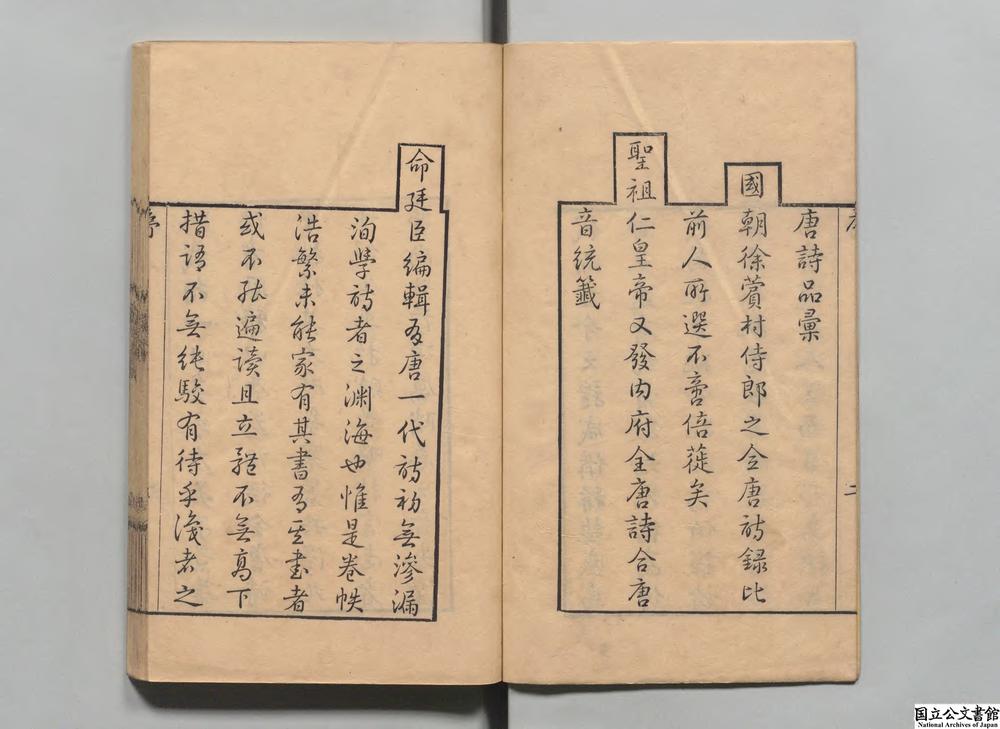 唐詩品彙
國朝徐蘋村侍郎之全唐詩錄比
前人所選不啻倍蓰矣
聖祖仁皇帝又發內府全唐詩合唐
音統籤
命廷臣編輯有唐一代詩初無滲漏
洵學詩者之淵海也惟是卷帙
浩繁未能家有其書有其書者
或不能遍读且立體不無高下
措語不無純駁有待乎淺者之
序
二
国立公文書館
National Archives of Japan